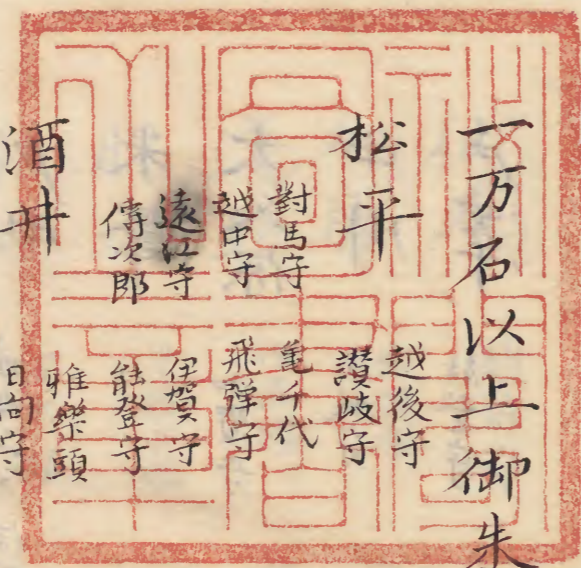 一万石以上御朱
松平
越後守
讃岐守
對馬守
亀千代
越中守
飛弾守
遠江守
伊賀守
傳次郎
能登守
酒井
雅樂頭
日向守